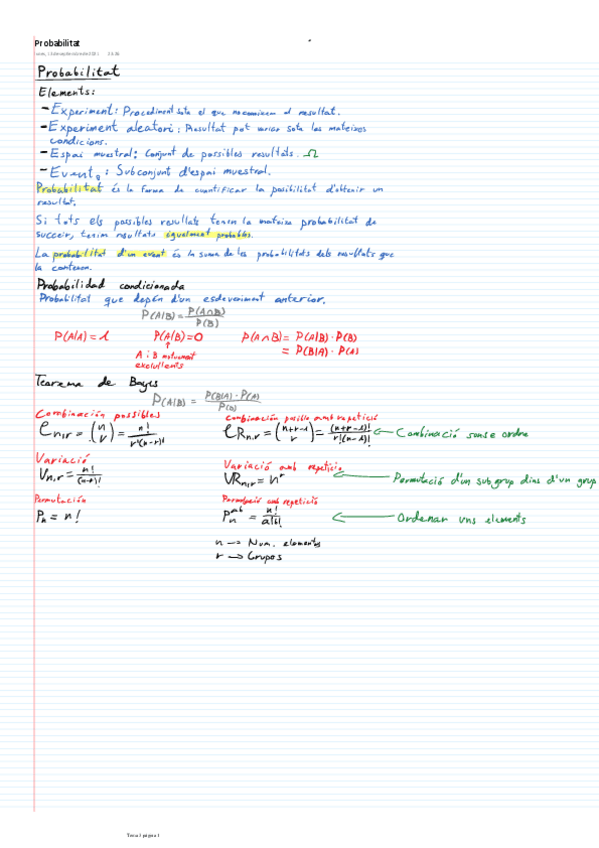 Probabilitat
Probabilitat
Elements:
- Experiment: Procediment sota el que reconeixem el resultat.
- Experiment aleatori: Resultat pot variar sota les mateixes
condicions.
- Espai mostral: Conjunt de possibles resultats. Ω
- Event: Subconjunt d'espai muestral.
Probabilitat és la forma de cuantificar la posibilitat d'obtenir un
resultat.
Si tots els possibles resultats tenen la mateixa probabilitat de
succeir, tenim resultats igualment probables.
La probabilitat d'un event és la suma de les probabilitats dels resultats que
la contenen.
Probabilidad condicionada
Probabilitat que depén d'un esdeveniment anterior.
P(A|B) = P(A∩B) / P(B)
P(A|A) = 1 P(A|B) = 0 P(A∩B) = P(A|B) · P(B)
= P(B|A) · P(A)
↑
A i B mutuament
excluents
Teorema de Bayes
P(A|B) = P(B|A) · P(A) / P(B)
Combinación possibles combinación posible amb repetició
Cn,r = (n r) = n! / r!(n-r)! CRn,r = (n+r-1 r) = (n+r-1)! / r!(n-1)! ← Combinació sense ordre
Variació Variació amb repetició
Vn,r = n! / (n-r)! VRn,r = n^r ← Permutació d'un subgrup dins d'un grup
Permutación Permutació amb repetició
Pn = n! Pn^ab = n! / a!b! ← Ordenar uns elements
n → Num. elements
r → Grupos
Tema 1 página 1